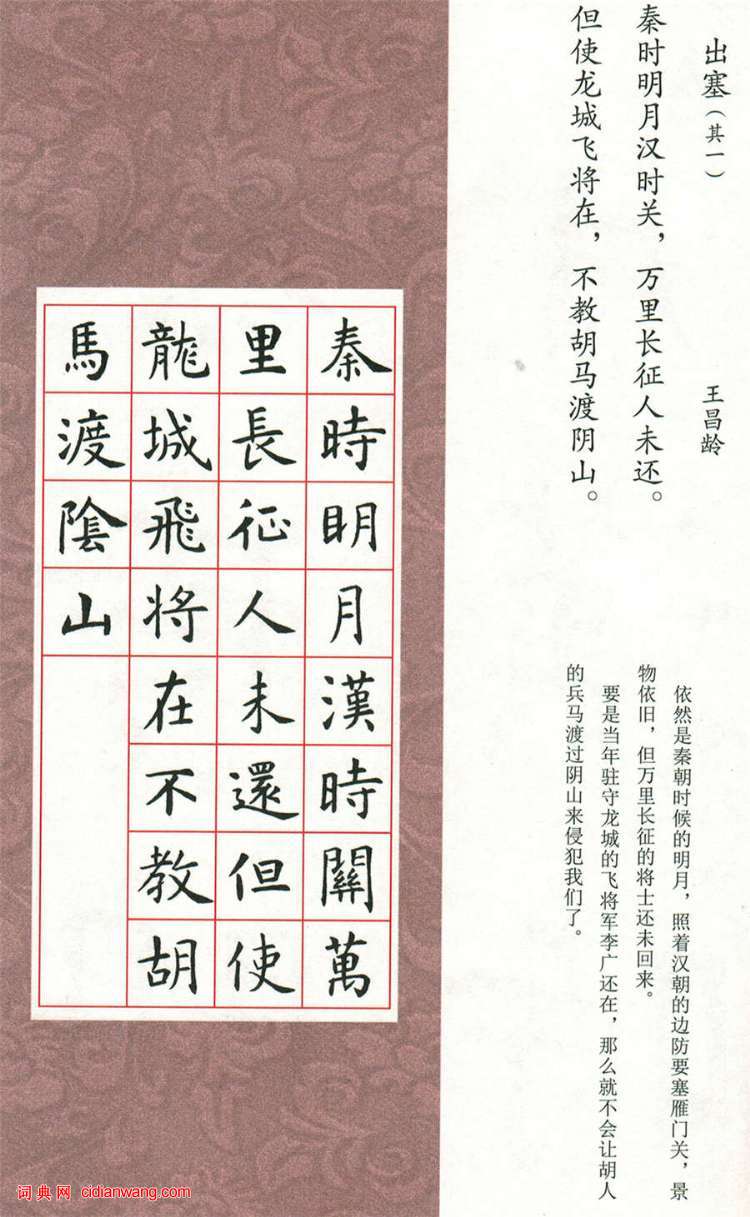 出塞（其一）
王昌龄
秦时明月汉时关，万里长征人未还。
但使龙城飞将在，不教胡马渡阴山。
依然是秦朝时候的明月，照着汉朝的边防要塞雁门关，景
物依旧，但万里长征的将士还未回来。
要是当年驻守龙城的飞将军李广还在，那么就不会让胡人
的兵马渡过阴山来侵犯我们了。
秦時明月漢時關萬
里長征人未還但使
龍城飛将在不教胡
馬渡陰山
词典网 cidianwang.com